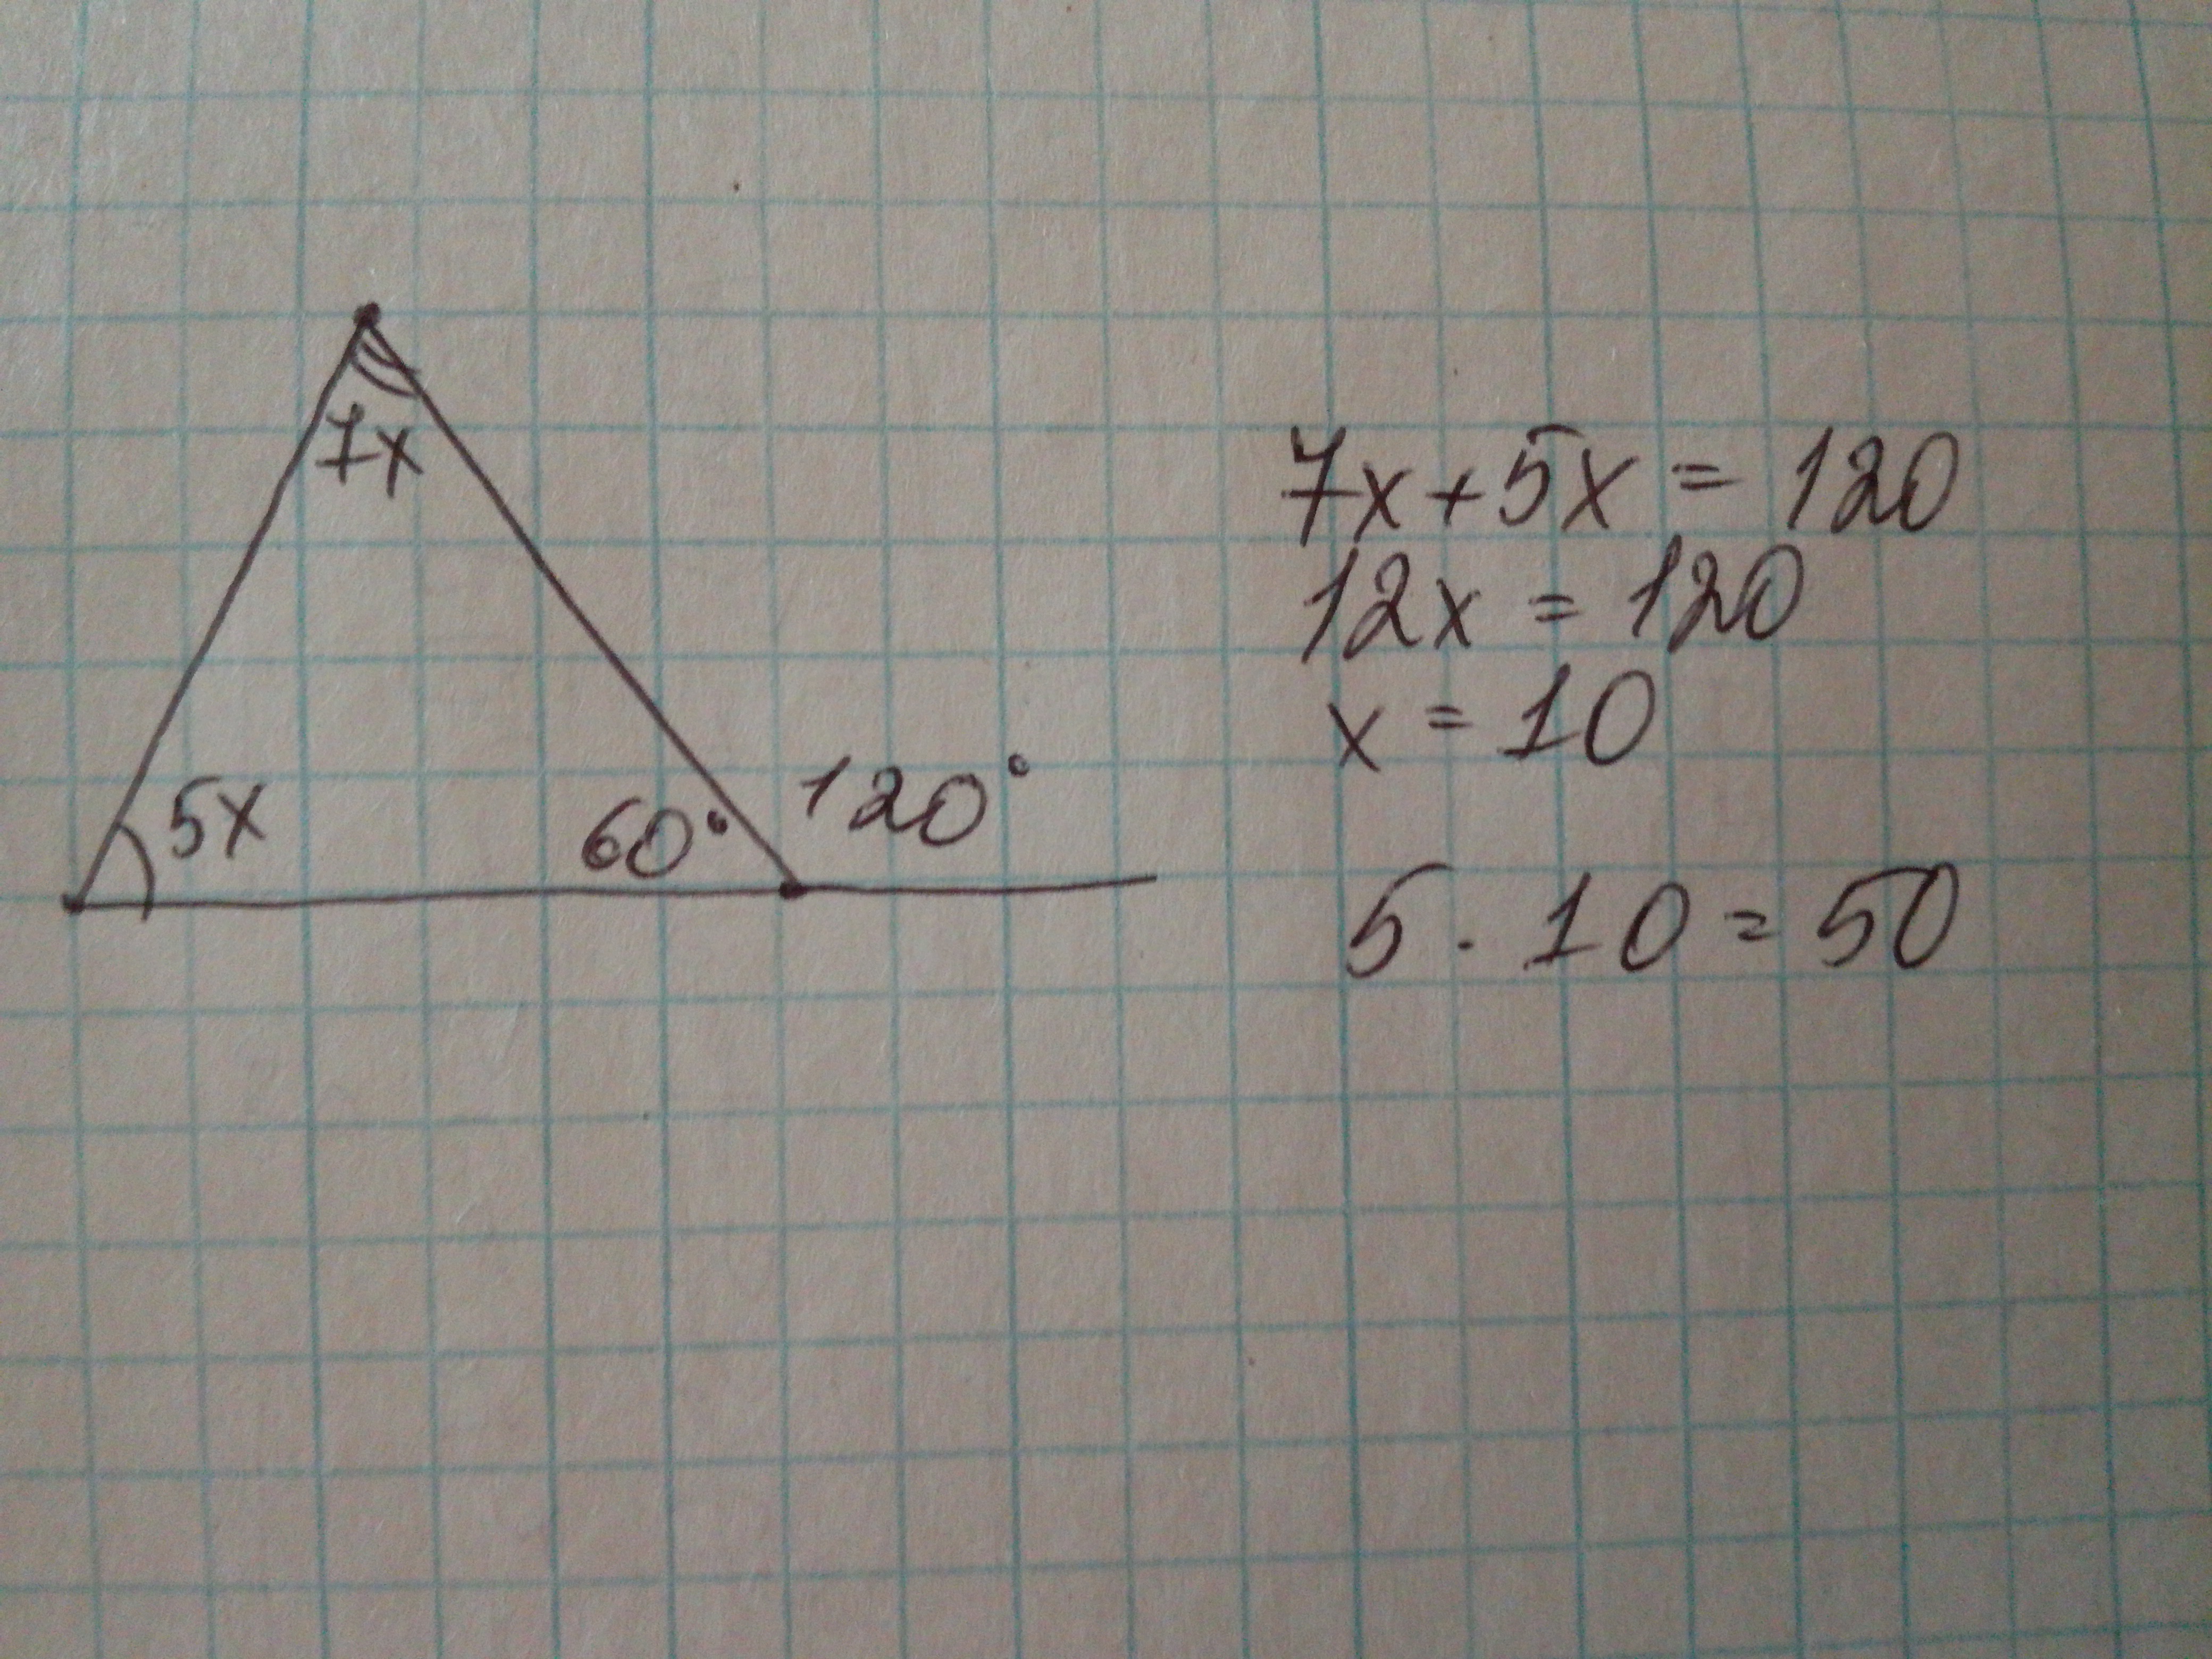 7x
5x
60°
120°
7x+5x = 120
12x = 120
x = 10
5 · 10 = 50